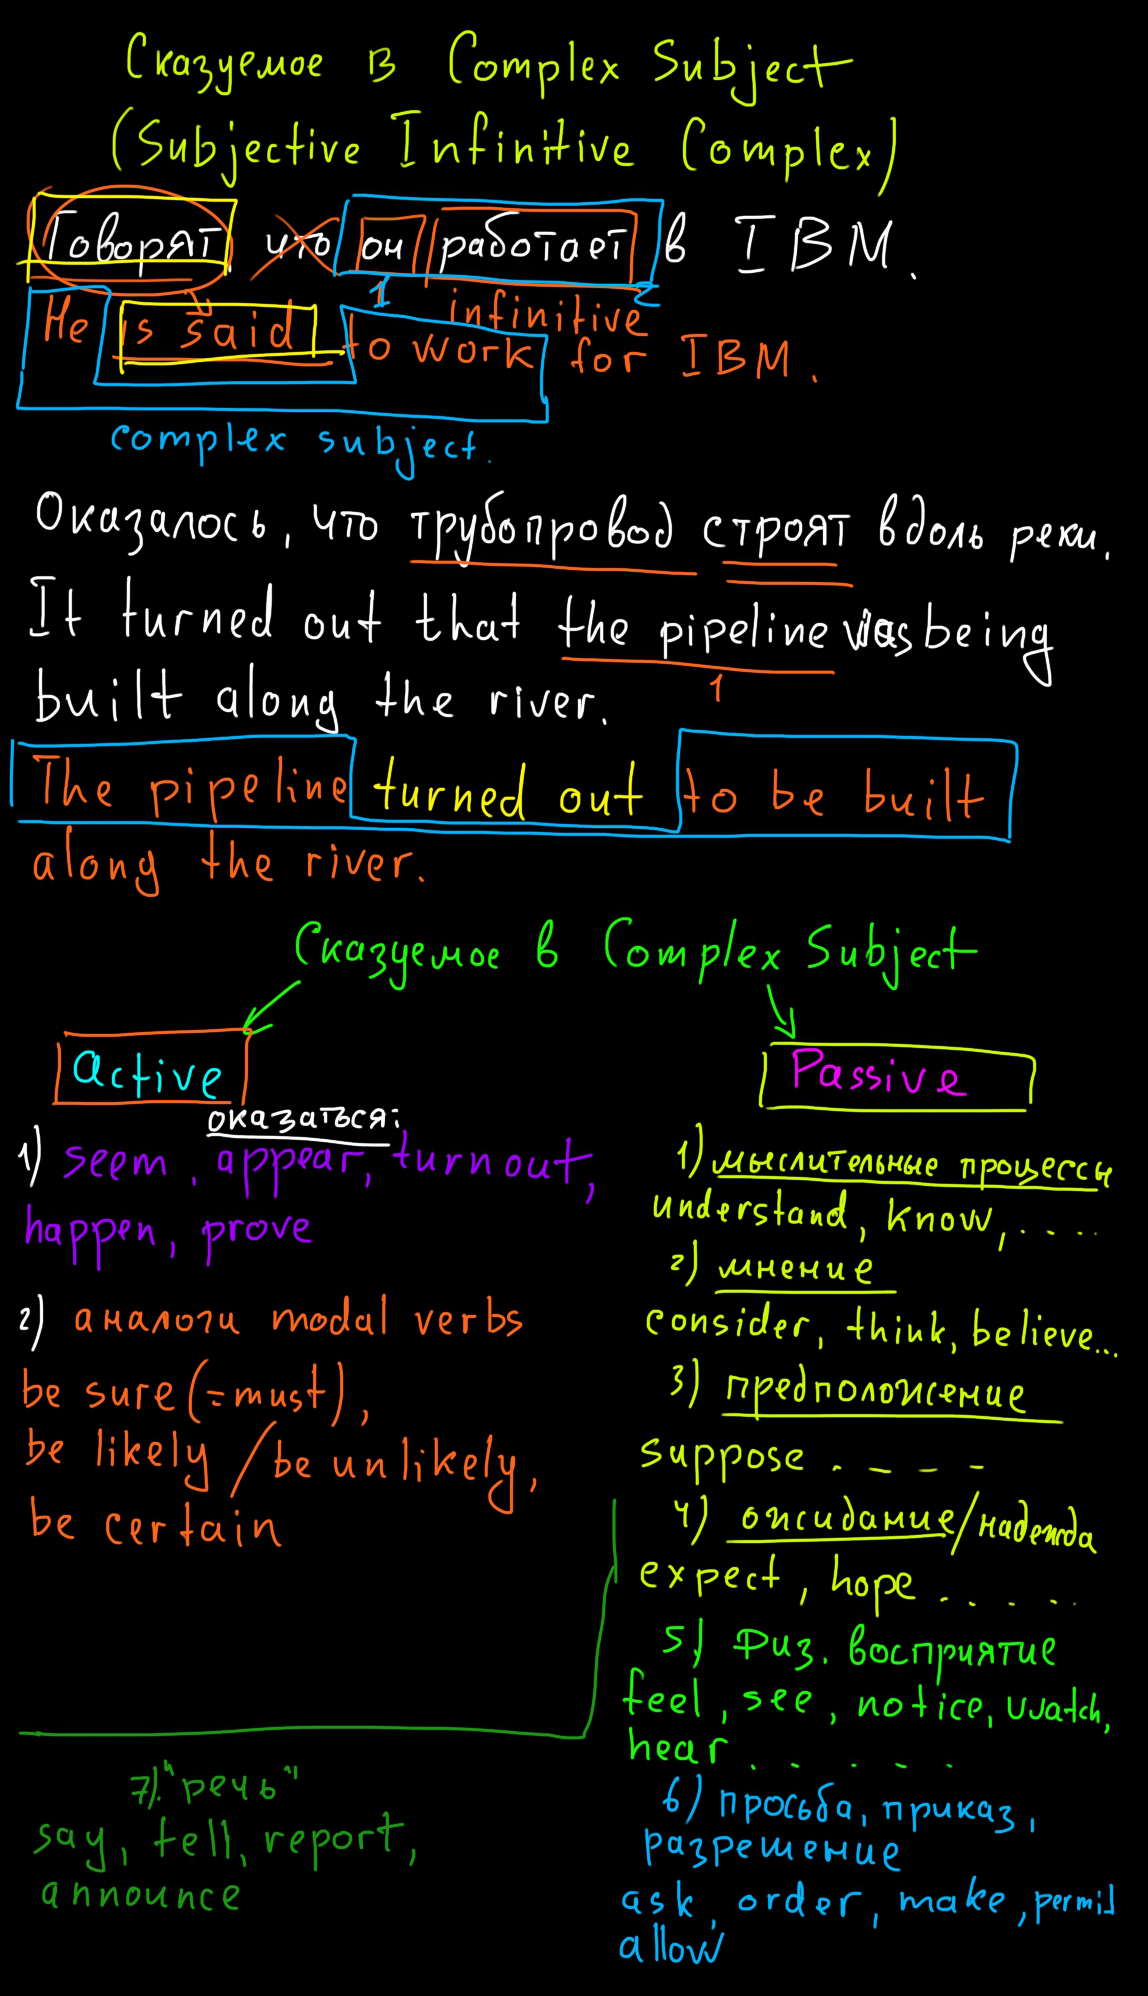 Сказуемое в Complex Subject
(Subjective Infinitive Complex)
Говорят, что он работает в IBM.
1 infinitive 2
He is said to work for IBM.
complex subject.
Оказалось, что трубопровод строят вдоль реки.
It turned out that the pipeline was being
1
built along the river.
The pipeline turned out to be built
along the river.
Сказуемое в Complex Subject
Active
оказаться:
1) seem, appear, turn out,
happen, prove
2) аналоги modal verbs
be sure (=must),
be likely / be unlikely,
be certain
Passive
1) мыслительные процессы
understand, know, ....
2) мнение
consider, think, believe...
3) предположение
suppose . _ _ _
4) ожидание/надежда
expect, hope .....
5) Физ. восприятие
feel, see, notice, watch,
hear .....
6) просьба, приказ,
разрешение
ask, order, make, permit
allow
7). "речь"
say, tell, report,
announce